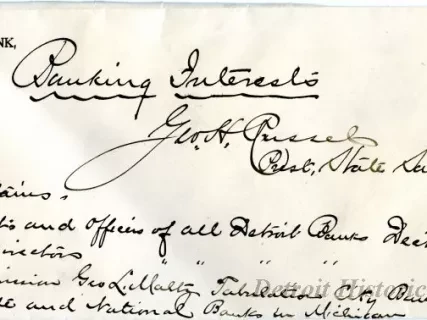 NK,
Banking Interests
Geo. H. Russel
Prest, State Sa
tains,
ts and Officers of all Detroit Banks Dec
irectors " " " "
ission Geo L. Maltz Tabulation City Ban
te and National Banks in Michigan
Detroit Historic